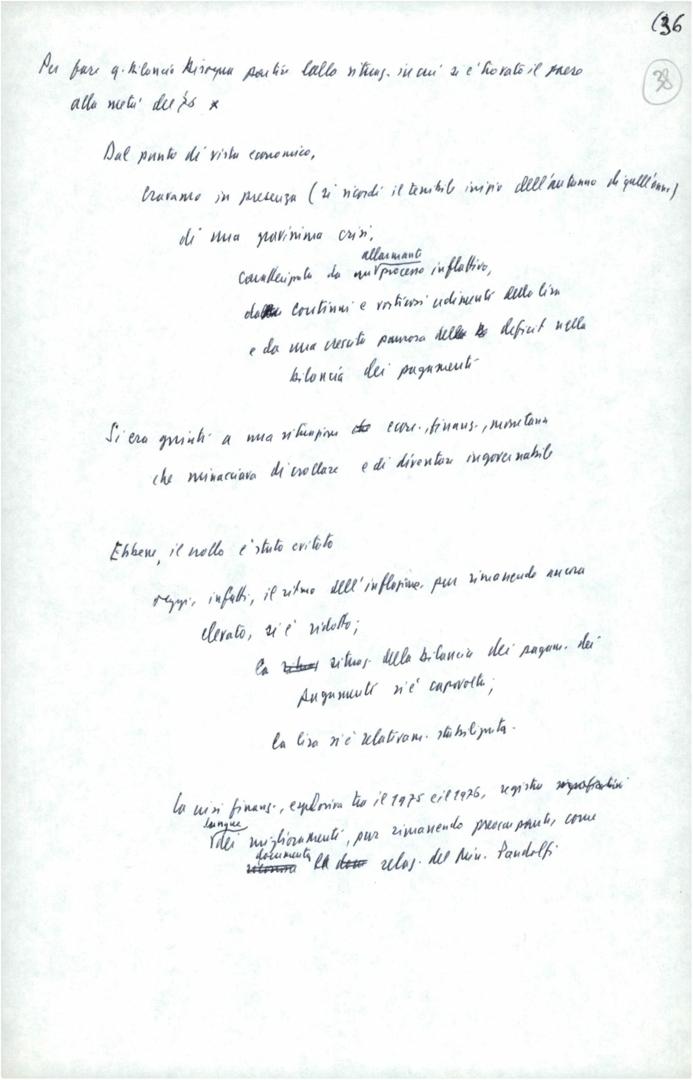 (36
38
Per fare q. bilancio bisogna partire dalla situaz. in cui si è trovato il paese
alla metà del '76 x
Dal punto di vista economico,
eravamo in presenza (si ricordi il terribile inizio dell'autunno di quell'anno)
di una gravissima crisi,
allarmante
caratterizzata da un processo inflattivo,
da continui e vistosi cedimenti della lira
e da una crescita paurosa del deficit nella
bilancia dei pagamenti
Si era giunti a una situazione econ., finanz., monetaria
che minacciava di crollare e di diventare ingovernabile
Ebbene, il crollo è stato evitato
oggi, infatti, il ritmo dell'inflazione, pur rimanendo ancora
elevato, si è ridotto;
la situaz. della bilancia dei pagam. dei
pagamenti si è capovolta;
la lira si è relativam. stabilizzata.
la crisi finanz., esplosiva tra il 1975 e il 1976, registra
dei miglioramenti, pur rimanendo preoccupante, come
documenta
la relaz. del Min. Pandolfi